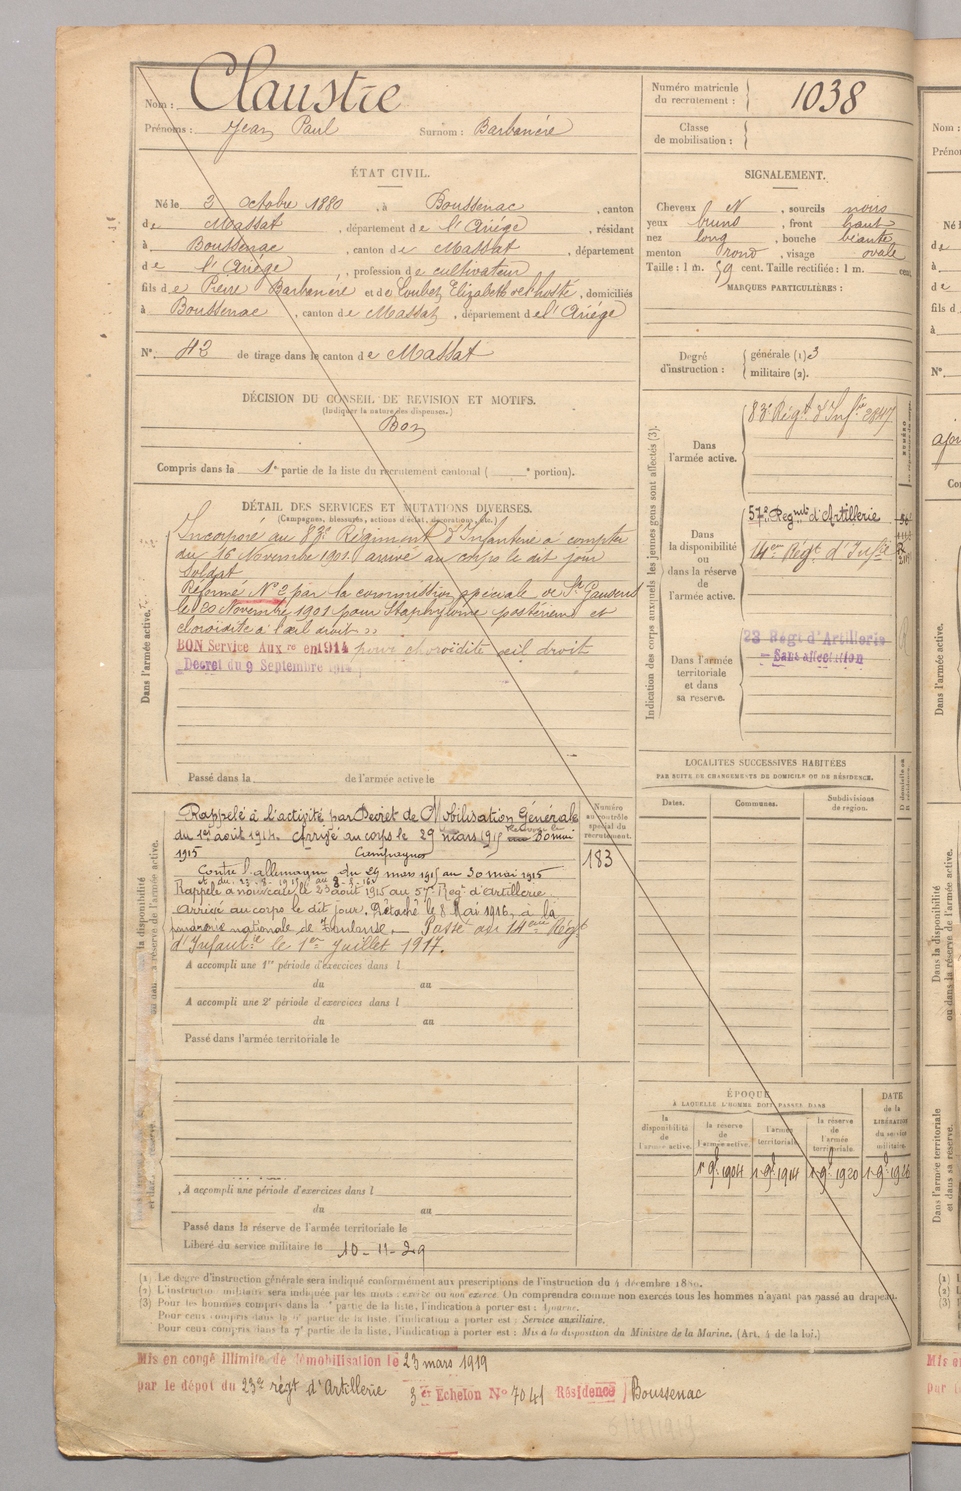 Nom : Claustre
Prénoms : Jean Paul Surnom : Barbanère
Numéro matricule du recrutement : 1038
Classe de mobilisation :
ÉTAT CIVIL.
Né le 3 Octobre 1880, à Boussenac, canton
de Massat, département de l'Ariège, résidant
à Boussenac, canton de Massat, département
de l'Ariège, profession de cultivateur
fils de Pierre Barbanère et de Loubet Elizabeth, domiciliés
à Boussenac, canton de Massat, département de l'Ariège
N°. 42 de tirage dans le canton de Massat
SIGNALEMENT.
Cheveux N, sourcils noirs
yeux bruns, front haut
nez long, bouche béante
menton rond, visage ovale
Taille : 1 m. 59 cent. Taille rectifiée : 1 m. cent.
MARQUES PARTICULIÈRES :
Degré d'instruction : générale (1) 3
militaire (2).
DÉCISION DU CONSEIL DE REVISION ET MOTIFS.
(Indiquer la nature des dispenses.)
Bon
Compris dans la 1e partie de la liste du recrutement cantonal ( e portion).
DÉTAIL DES SERVICES ET MUTATIONS DIVERSES.
(Campagnes, blessures, actions d'éclat, décorations, etc.)
Dans l'armée active.
Incorporé au 83e Régiment d'Infanterie à compter
du 16 Novembre 1901. arrivé au corps le dit jour
Soldat
Réformé N° 2 par la commission spéciale de St Gaudens
le 20 Novembre 1901 pour Staphylome postérieur et
choroïdite à l'œil droit »
BON Service Auxre en 1914 pour choroïdite œil droit
Décret du 9 Septembre 1914
Passé dans la de l'armée active le
Indication des corps auxquels les jeunes gens sont affectés (3).
Dans l'armée active.
83e Régt d'Infie
Dans la disponibilité ou dans la réserve de l'armée active.
57e Regmt d'Artillerie
14eme Régt d'Infie
Dans l'armée territoriale et dans sa réserve.
23 Régt d'Artillerie
Sans affectation
LOCALITÉS SUCCESSIVES HABITÉES
PAR SUITE DE CHANGEMENTS DE DOMICILE OU DE RÉSIDENCE.
Dates. Communes. Subdivisions de region.
Numéro au contrôle spécial du recrutement.
183
Rappelé à l'activité par Décret de Mobilisation Générale
du 1er août 1914. Arrivé au corps le 29 mars 1915 30 mai
1915
Campagnes
Contre l'allemagne du 29 mars 1915 au 30 mai 1915
et du 23-8-1915 au 8-5-16
Rappelé à nouveau le 23 août 1915 au 57e Regt d'artillerie.
Arrivé au corps le dit jour. Détaché le 8 Mai 1916, à la
poudrerie nationale de Toulouse. — Passé au 14eme Régt
d'Infantie le 1er Juillet 1917.
A accompli une 1re période d'exercices dans l
du au
A accompli une 2e période d'exercices dans l
du au
Passé dans l'armée territoriale le
ÉPOQUE
À LAQUELLE L'HOMME DOIT PASSER DANS
la disponibilité de l'armée active. la réserve de l'armée active. l'armée territoriale. la réserve de l'armée territoriale.
DATE de la LIBÉRATION du service militaire.
1 9bre 1904 1 9bre 1914 1 9bre 1920 1 9bre 1926
A accompli une période d'exercices dans l
du au
Passé dans la réserve de l'armée territoriale le
Libéré du service militaire le 10-11-29
(1) Le degré d'instruction générale sera indiqué conformément aux prescriptions de l'instruction du 4 décembre 1889.
(2) L'instruction militaire sera indiquée par les mots : exercé ou non exercé. On comprendra comme non exercés tous les hommes n'ayant pas passé au drapeau.
(3) Pour les hommes compris dans la e partie de la liste, l'indication à porter est : Ajourné.
Pour ceux compris dans la e partie de la liste, l'indication à porter est : Service auxiliaire.
Pour ceux compris dans la 7e partie de la liste, l'indication à porter est : Mis à la disposition du Ministre de la Marine. (Art. 4 de la loi.)
Mis en congé illimité de démobilisation le 23 mars 1919
par le dépôt du 23e régt d'Artillerie 3e Echelon N° 7041 Résidence Boussenac